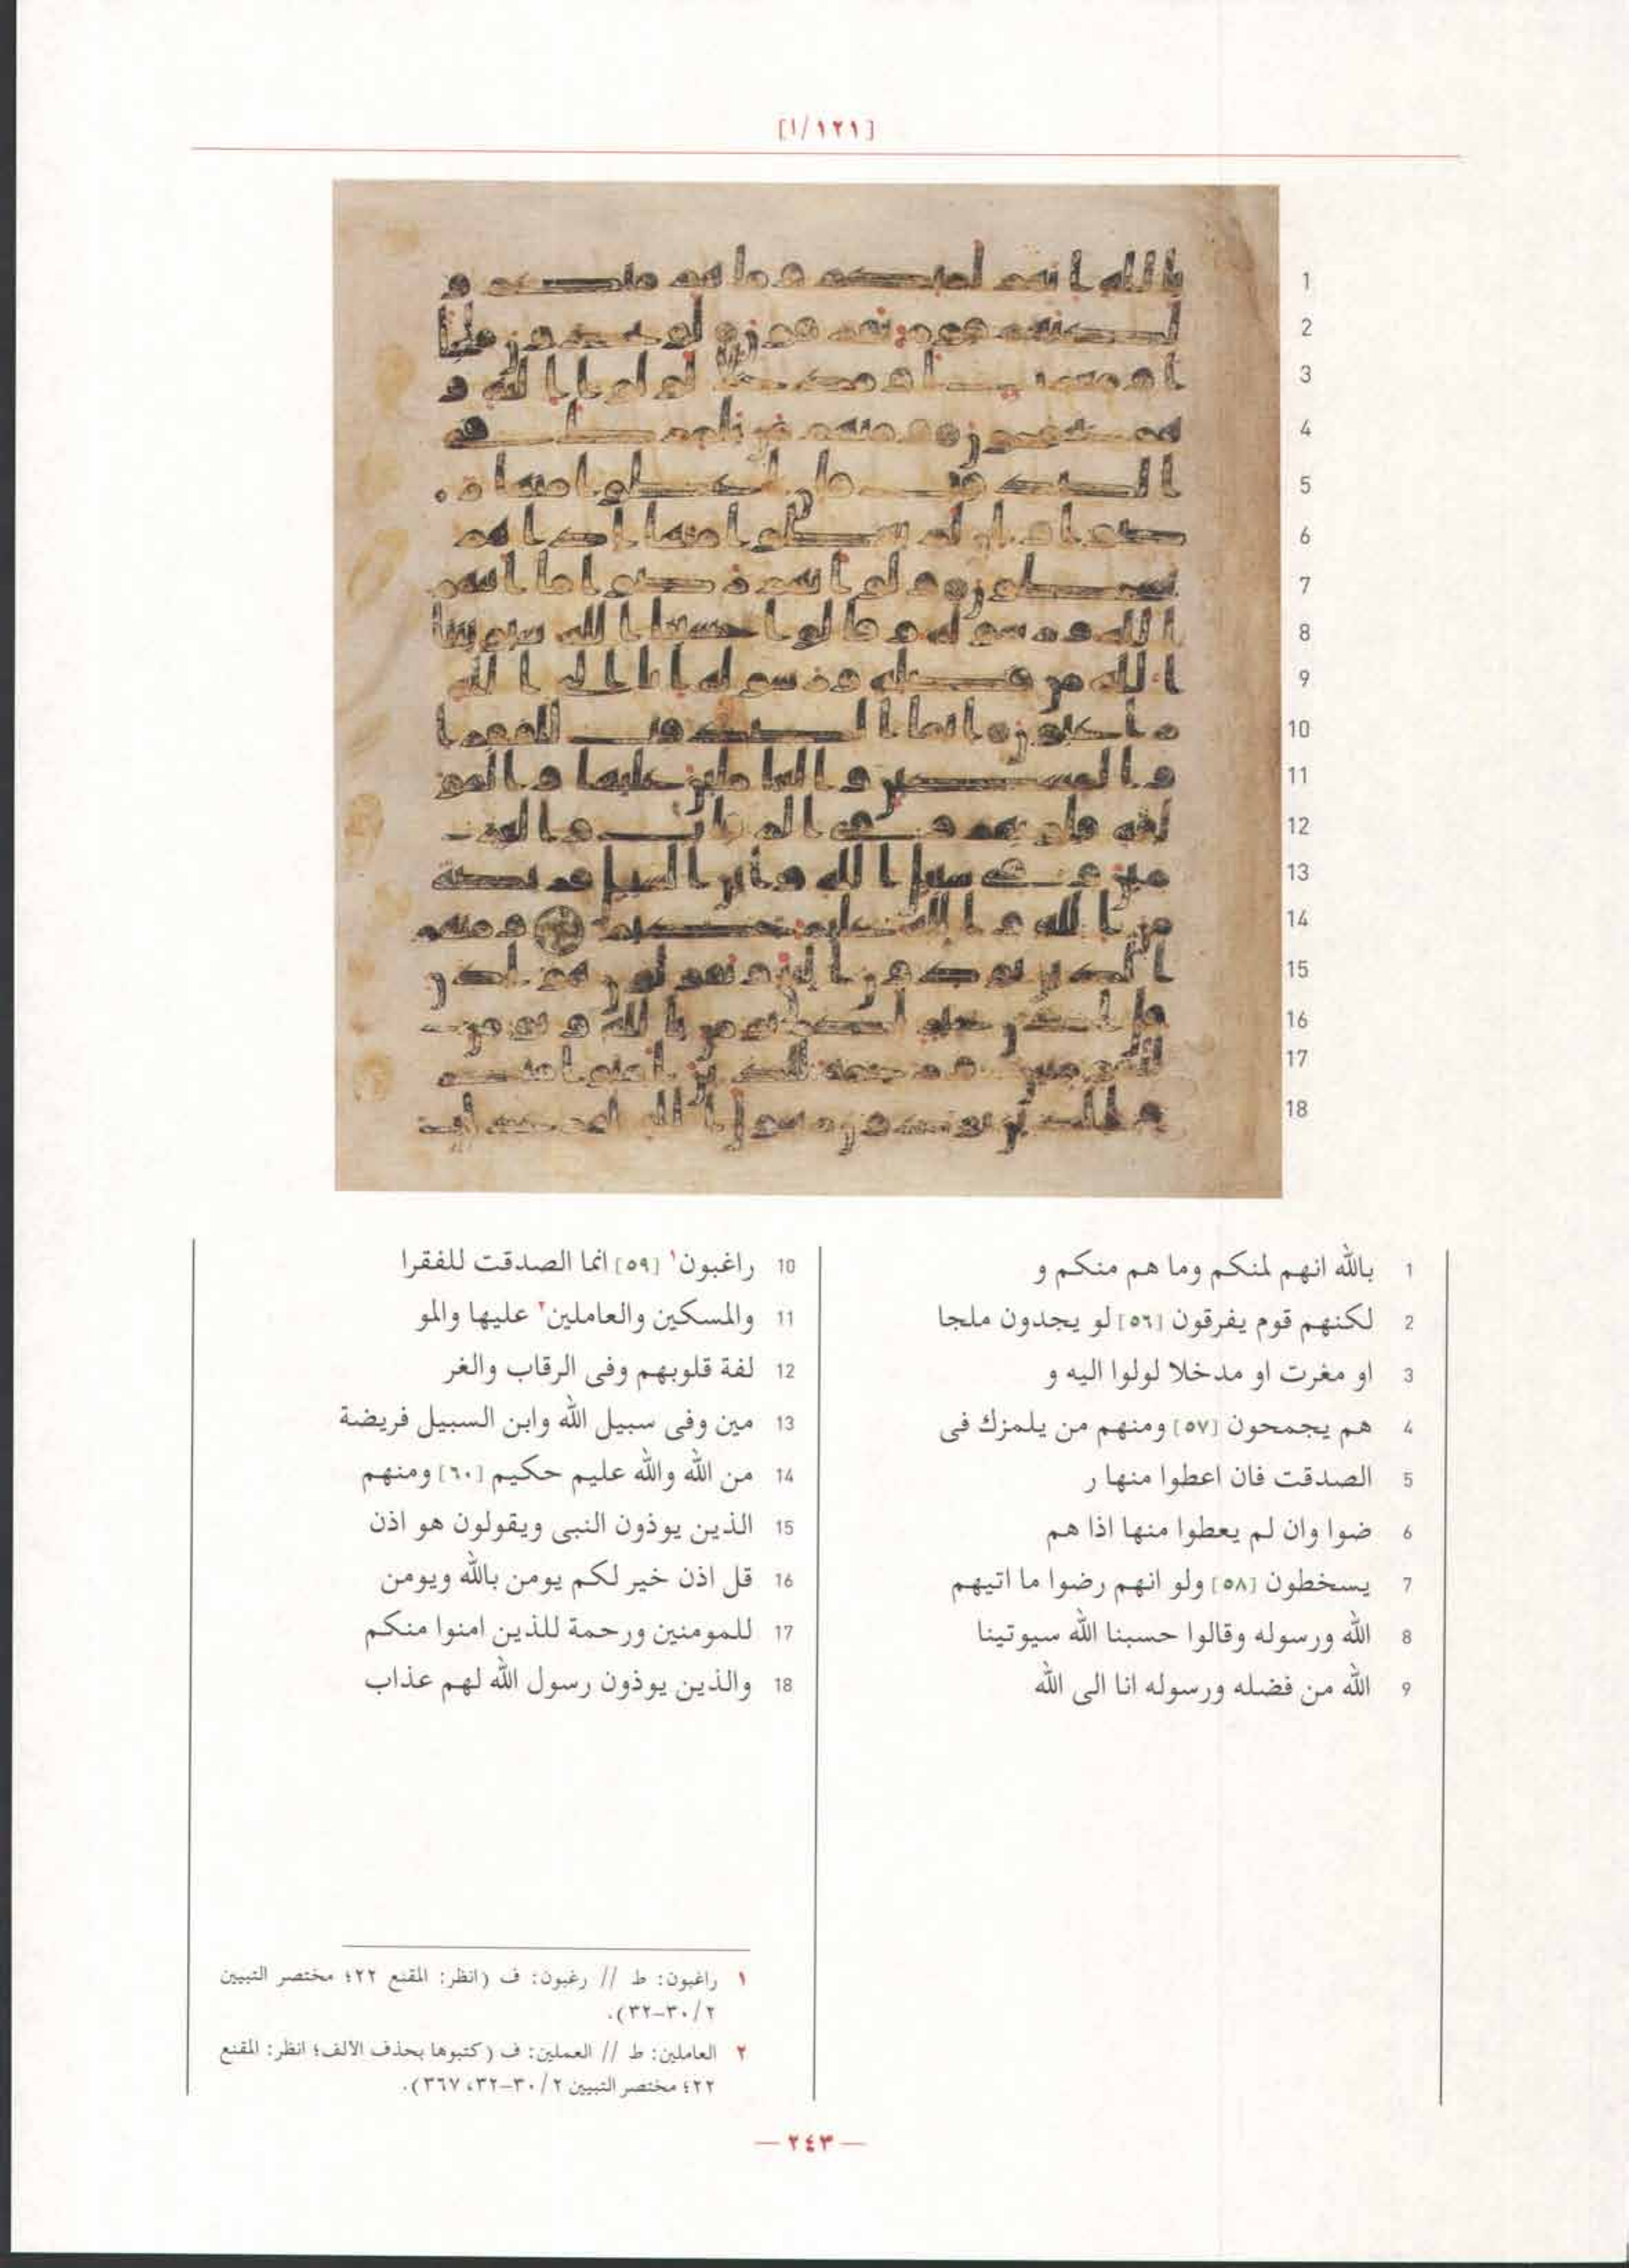 [١/١٢١]
1 بالله انهم لمنكم وما هم منكم و
2 لكنهم قوم يفرقون [٥٦] لو يجدون ملجا
3 او مغرت او مدخلا لولوا اليه و
4 هم يجمحون [٥٧] ومنهم من يلمزك فى
5 الصدقت فان اعطوا منها ر
6 ضوا وان لم يعطوا منها اذا هم
7 يسخطون [٥٨] ولو انهم رضوا ما اتيهم
8 الله ورسوله وقالوا حسبنا الله سيوتينا
9 الله من فضله ورسوله انا الى الله
10 راغبون١ [٥٩] انما الصدقت للفقرا
11 والمسكين والعاملين٢ عليها والمو
12 لفة قلوبهم وفى الرقاب والغر
13 مين وفى سبيل الله وابن السبيل فريضة
14 من الله والله عليم حكيم [٦٠] ومنهم
15 الذين يوذون النبى ويقولون هو اذن
16 قل اذن خير لكم يومن بالله ويومن
17 للمومنين ورحمة للذين امنوا منكم
18 والذين يوذون رسول الله لهم عذاب
١ راغبون: ط // رغبون: ف (انظر: المقنع ٢٢؛ مختصر التبيين
٢/ ٣٠–٣٢).
٢ العاملين: ط // العملين: ف (كتبوها بحذف الالف؛ انظر: المقنع
٢٢؛ مختصر التبيين ٢/ ٣٠–٣٢، ٣٦٧).
— ٢٤٣ —